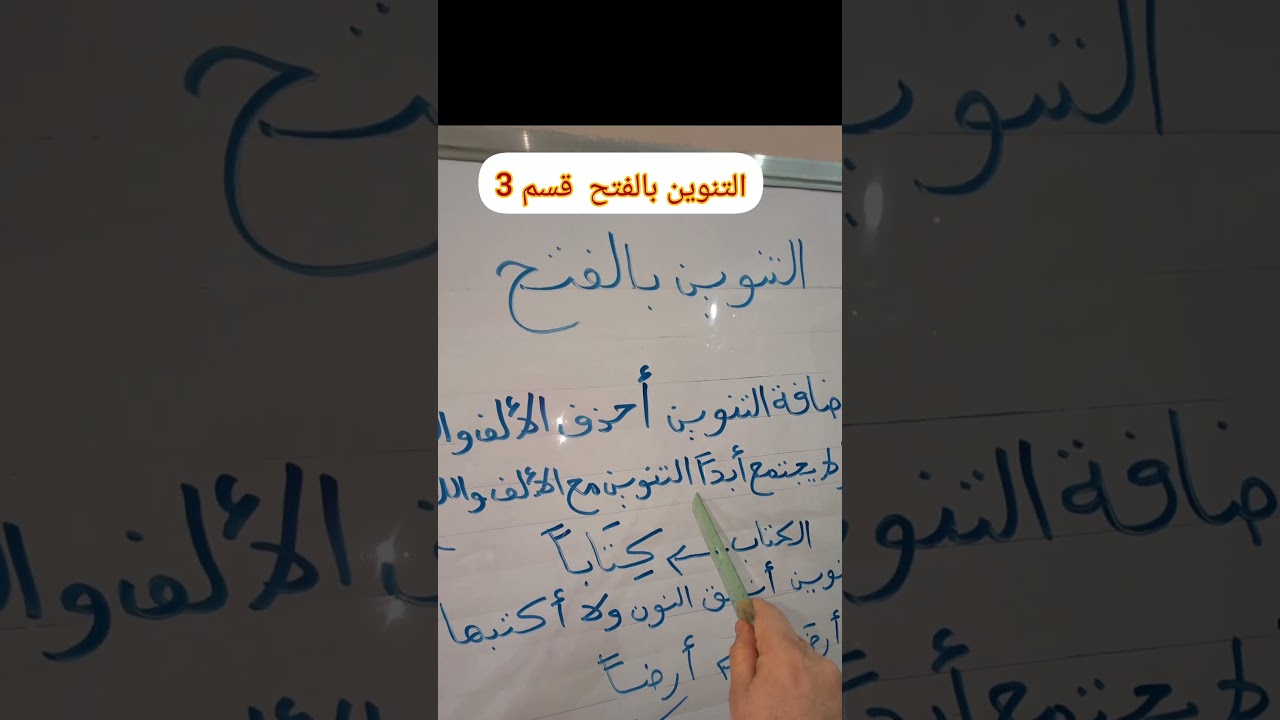 التنوين بالفتح قسم 3
التنوين بالفتح
ضافة التنوين أحذف الألف وا
لا يجتمع أبداً التنوين مع الألف والل
الكتاب كِتَاباً
نوين أنطق النون ولا أكتبها
أرضاً